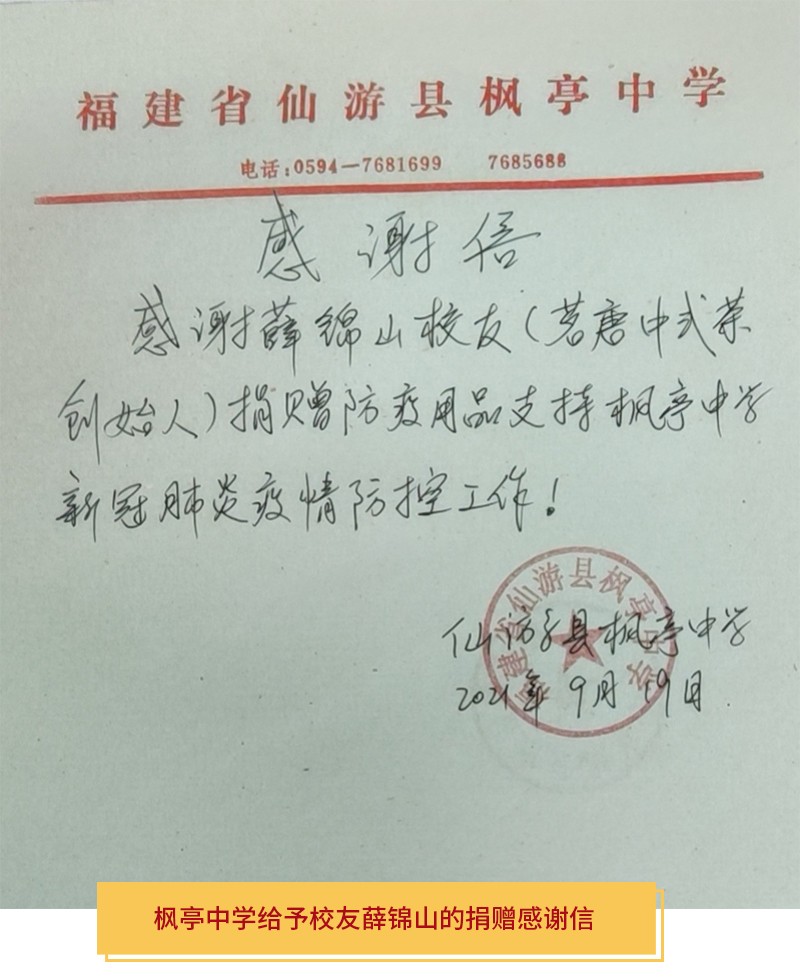 福建省仙游县枫亭中学
电话:0594—7681699 7685688
感谢信
感谢薛锦山校友(茗唐中式茶
创始人)捐赠防疫用品支持枫亭中学
新冠肺炎疫情防控工作!
福建省仙游县枫亭中学
仙游县枫亭中学
2021年9月19日
枫亭中学给予校友薛锦山的捐赠感谢信